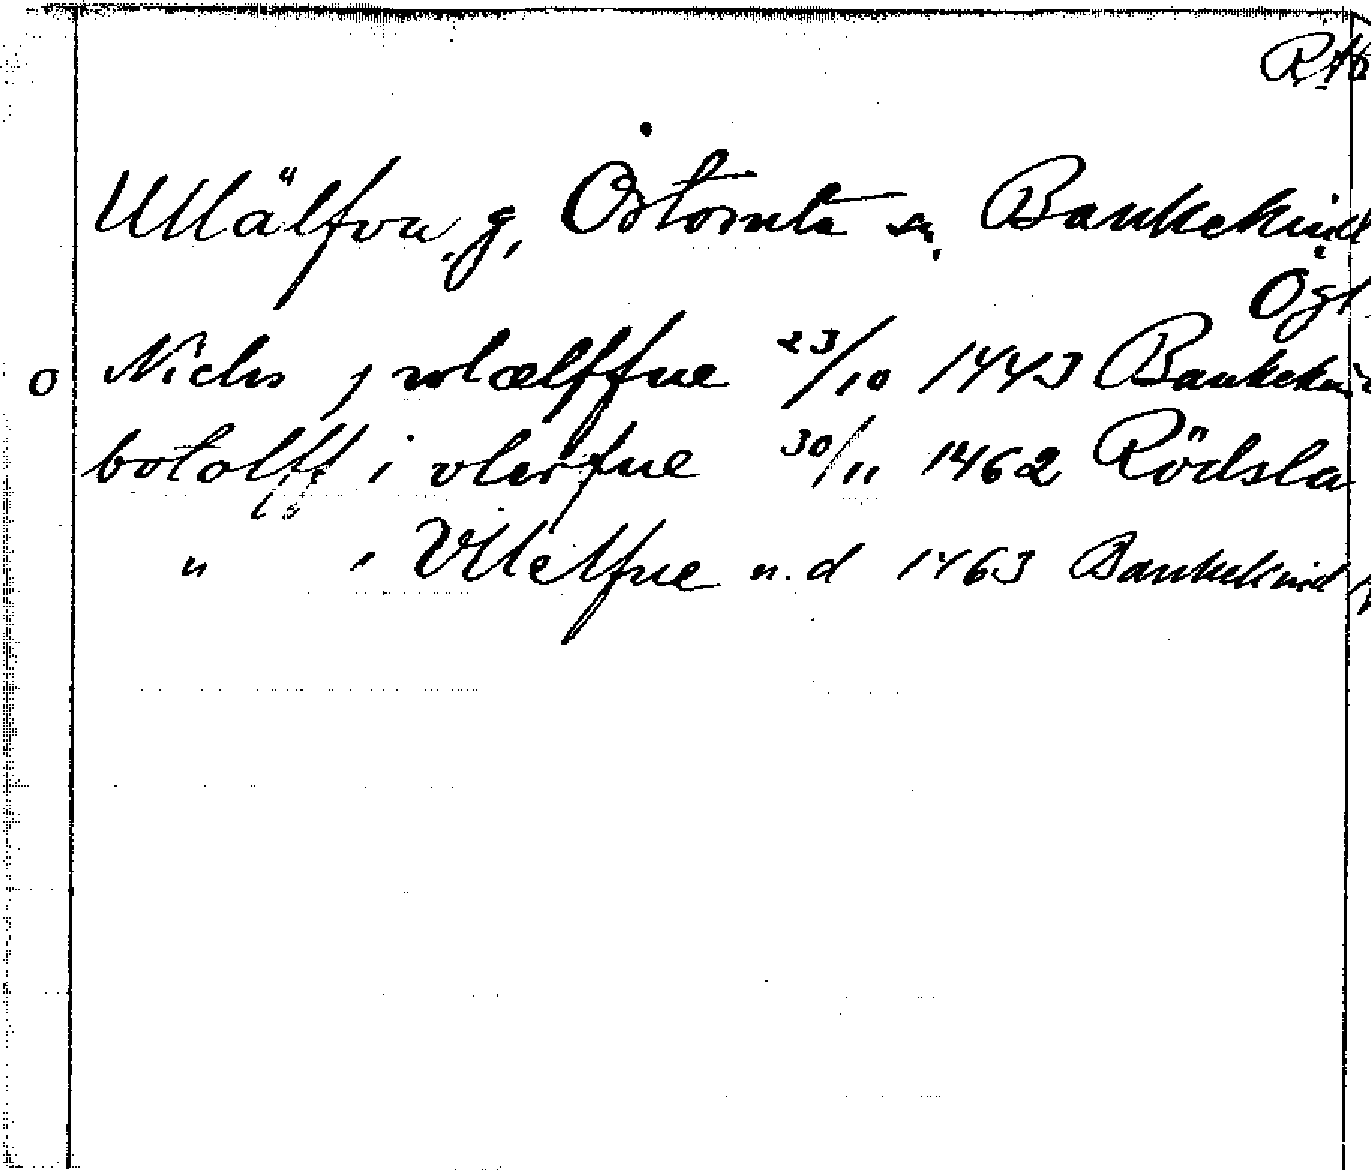 Ullälfva, g, Örtomta sn, Bankekind
Ögl
o Niclis j wlælffue 23/10 1443 Bankekind
botolff i vlerfue 30/11 1462 Rödsla
" i Vllelfue u.d 1463 Bankekind